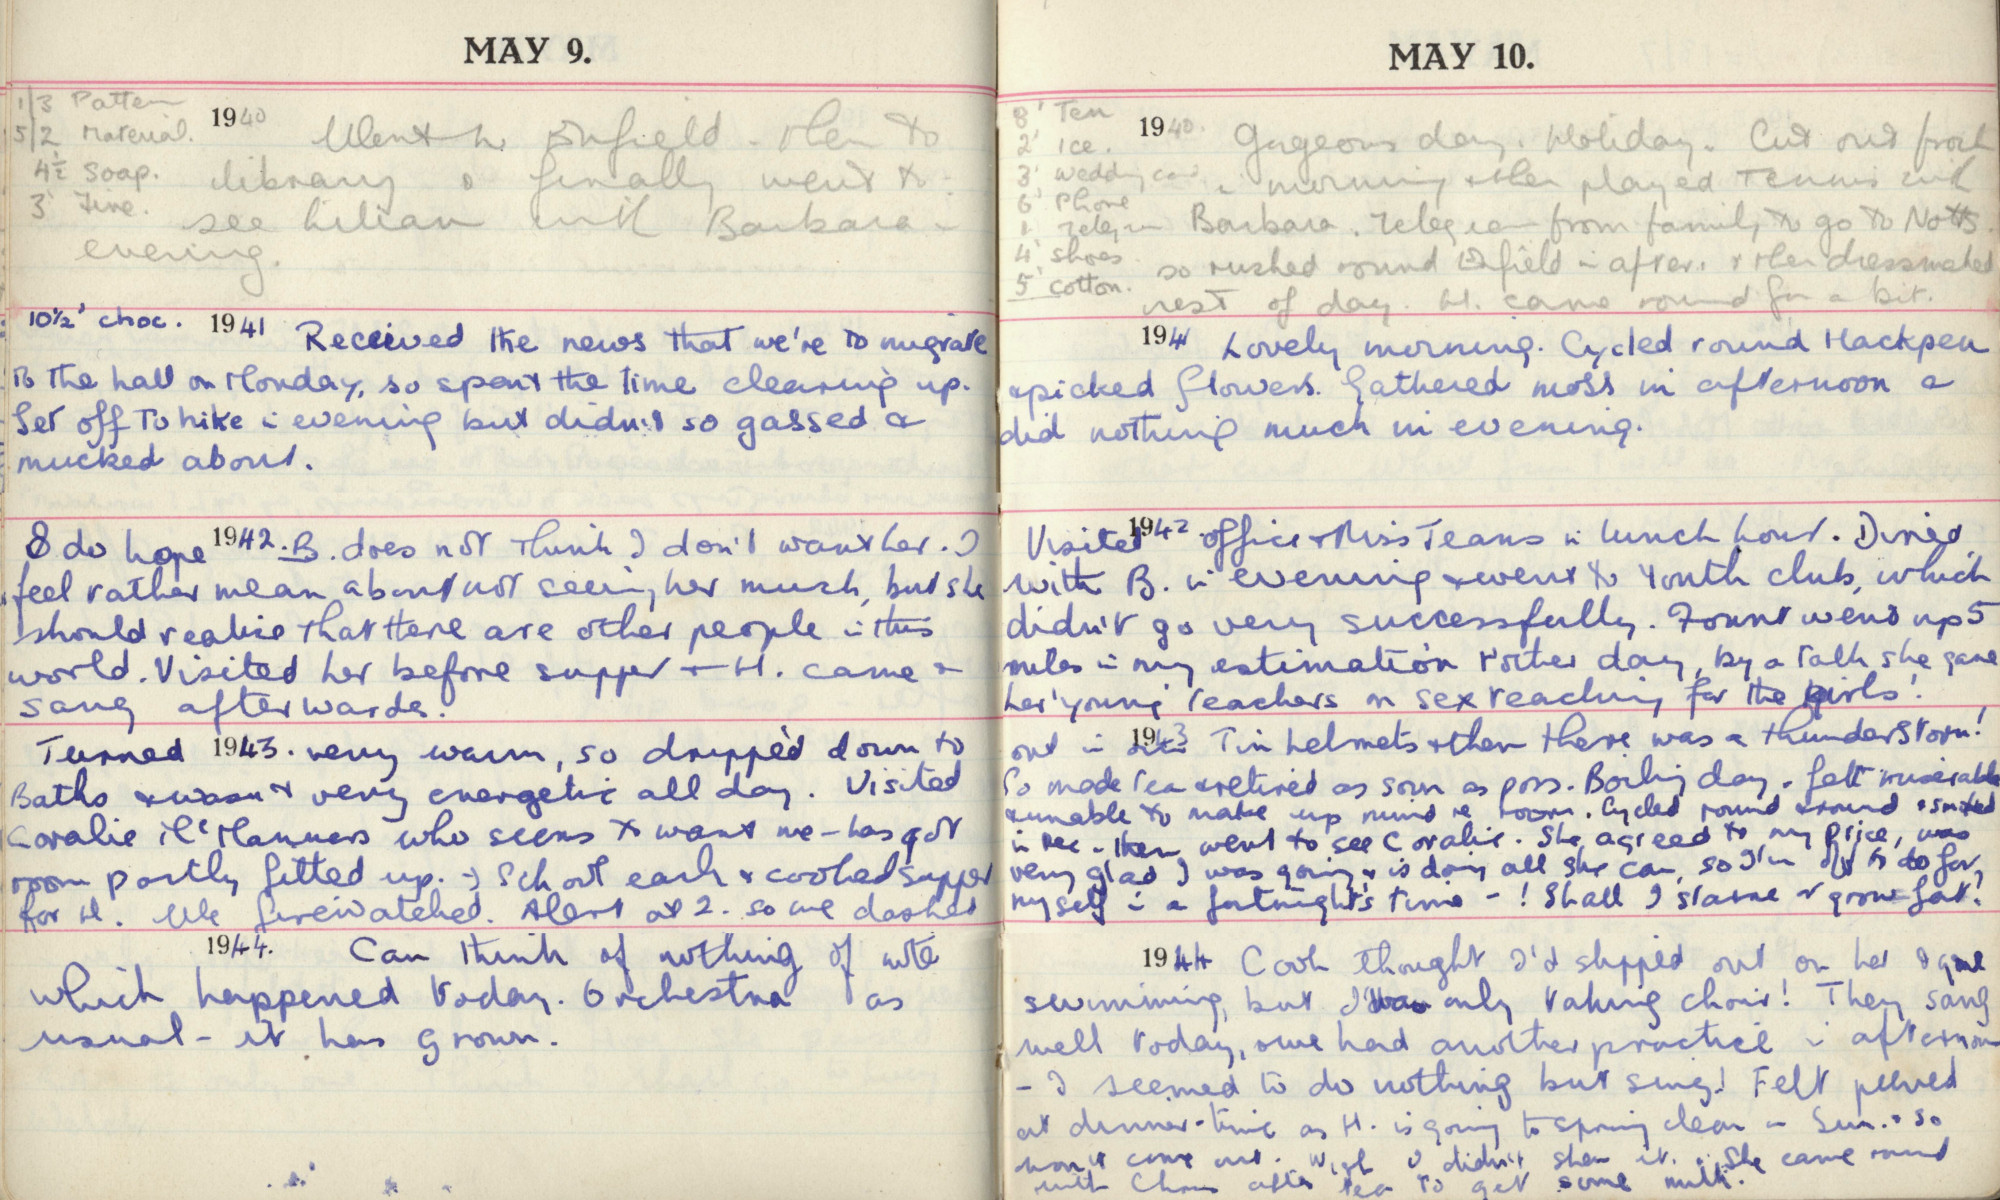 MAY 9.
1/3 Pattern
5/2 Material.
4½ Soap.
3' Fine.
1940 Went to Enfield - then to
library & finally went to
see Lilian with Barbara in
evening.
10½' choc. 1941 Received the news that we're to migrate
to the hall on Monday, so spent the time clearing up.
Set off to hike i evening but didn't so gassed &
mucked about.
I do hope 1942. B. does not think I don't want her. I
feel rather mean about not seeing her much, but she
should realise that there are other people in this
world. Visited her before supper + H. came &
sang afterwards.
Turned 1943. very warm, so dripped down to
Baths & wasn't very energetic all day. Visited
Coralie McManners who seems to want me - has got
room partly fitted up. School each & cooked supper
for H. We firewatched. Alert at 2. so we dashed
1944. Can think of nothing of note
which happened today. Orchestra as
usual - it has grown.
MAY 10.
8' Ten
2' Ice.
3' Wedding card
6' Phone
1' Telegram
4' shoes
5' cotton.
1940. Gorgeous day. Holiday. Cut out frock
i morning & then played Tennis with
Barbara. Telegram from family to go to Notts.
so rushed round Enfield in after. & then dressmaked
rest of day. H. came round for a bit.
1941 Lovely morning. Cycled round Hackpen
& picked flowers. Gathered moss in afternoon &
did nothing much in evening.
Visited 1942 office & Miss Teams in lunch hour. Dined
with B. in evening & went to Youth club, which
didn't go very successfully. Fount went up 5
miles in my estimation t'other day, by a talk she gave
her 'young teachers on sex teaching for the girls'.
out in 1943 Tin helmets & then there was a thunderstorm!
So made tea & retired as soon as poss. Boiling day. felt miserable
& unable to make up mind re room. Cycled round & round &
in Rec - then went to see Coralie. She agreed to my price, was
very glad I was going & is doing all she can, so I'm off to do for
myself in a fortnight's time - ! Shall I starve or grow fat?
1944 Cook thought I'd slipped out on her & gone
swimming, but I was only taking choir! They sang
well today, & we had another practice in afternoon
- I seemed to do nothing but sing! Felt peeved
at dinner-time as H. is going to spring clean on Sun. & so
won't come out. Wish I didn't show it. She came round
with Chris after tea to get some milk.